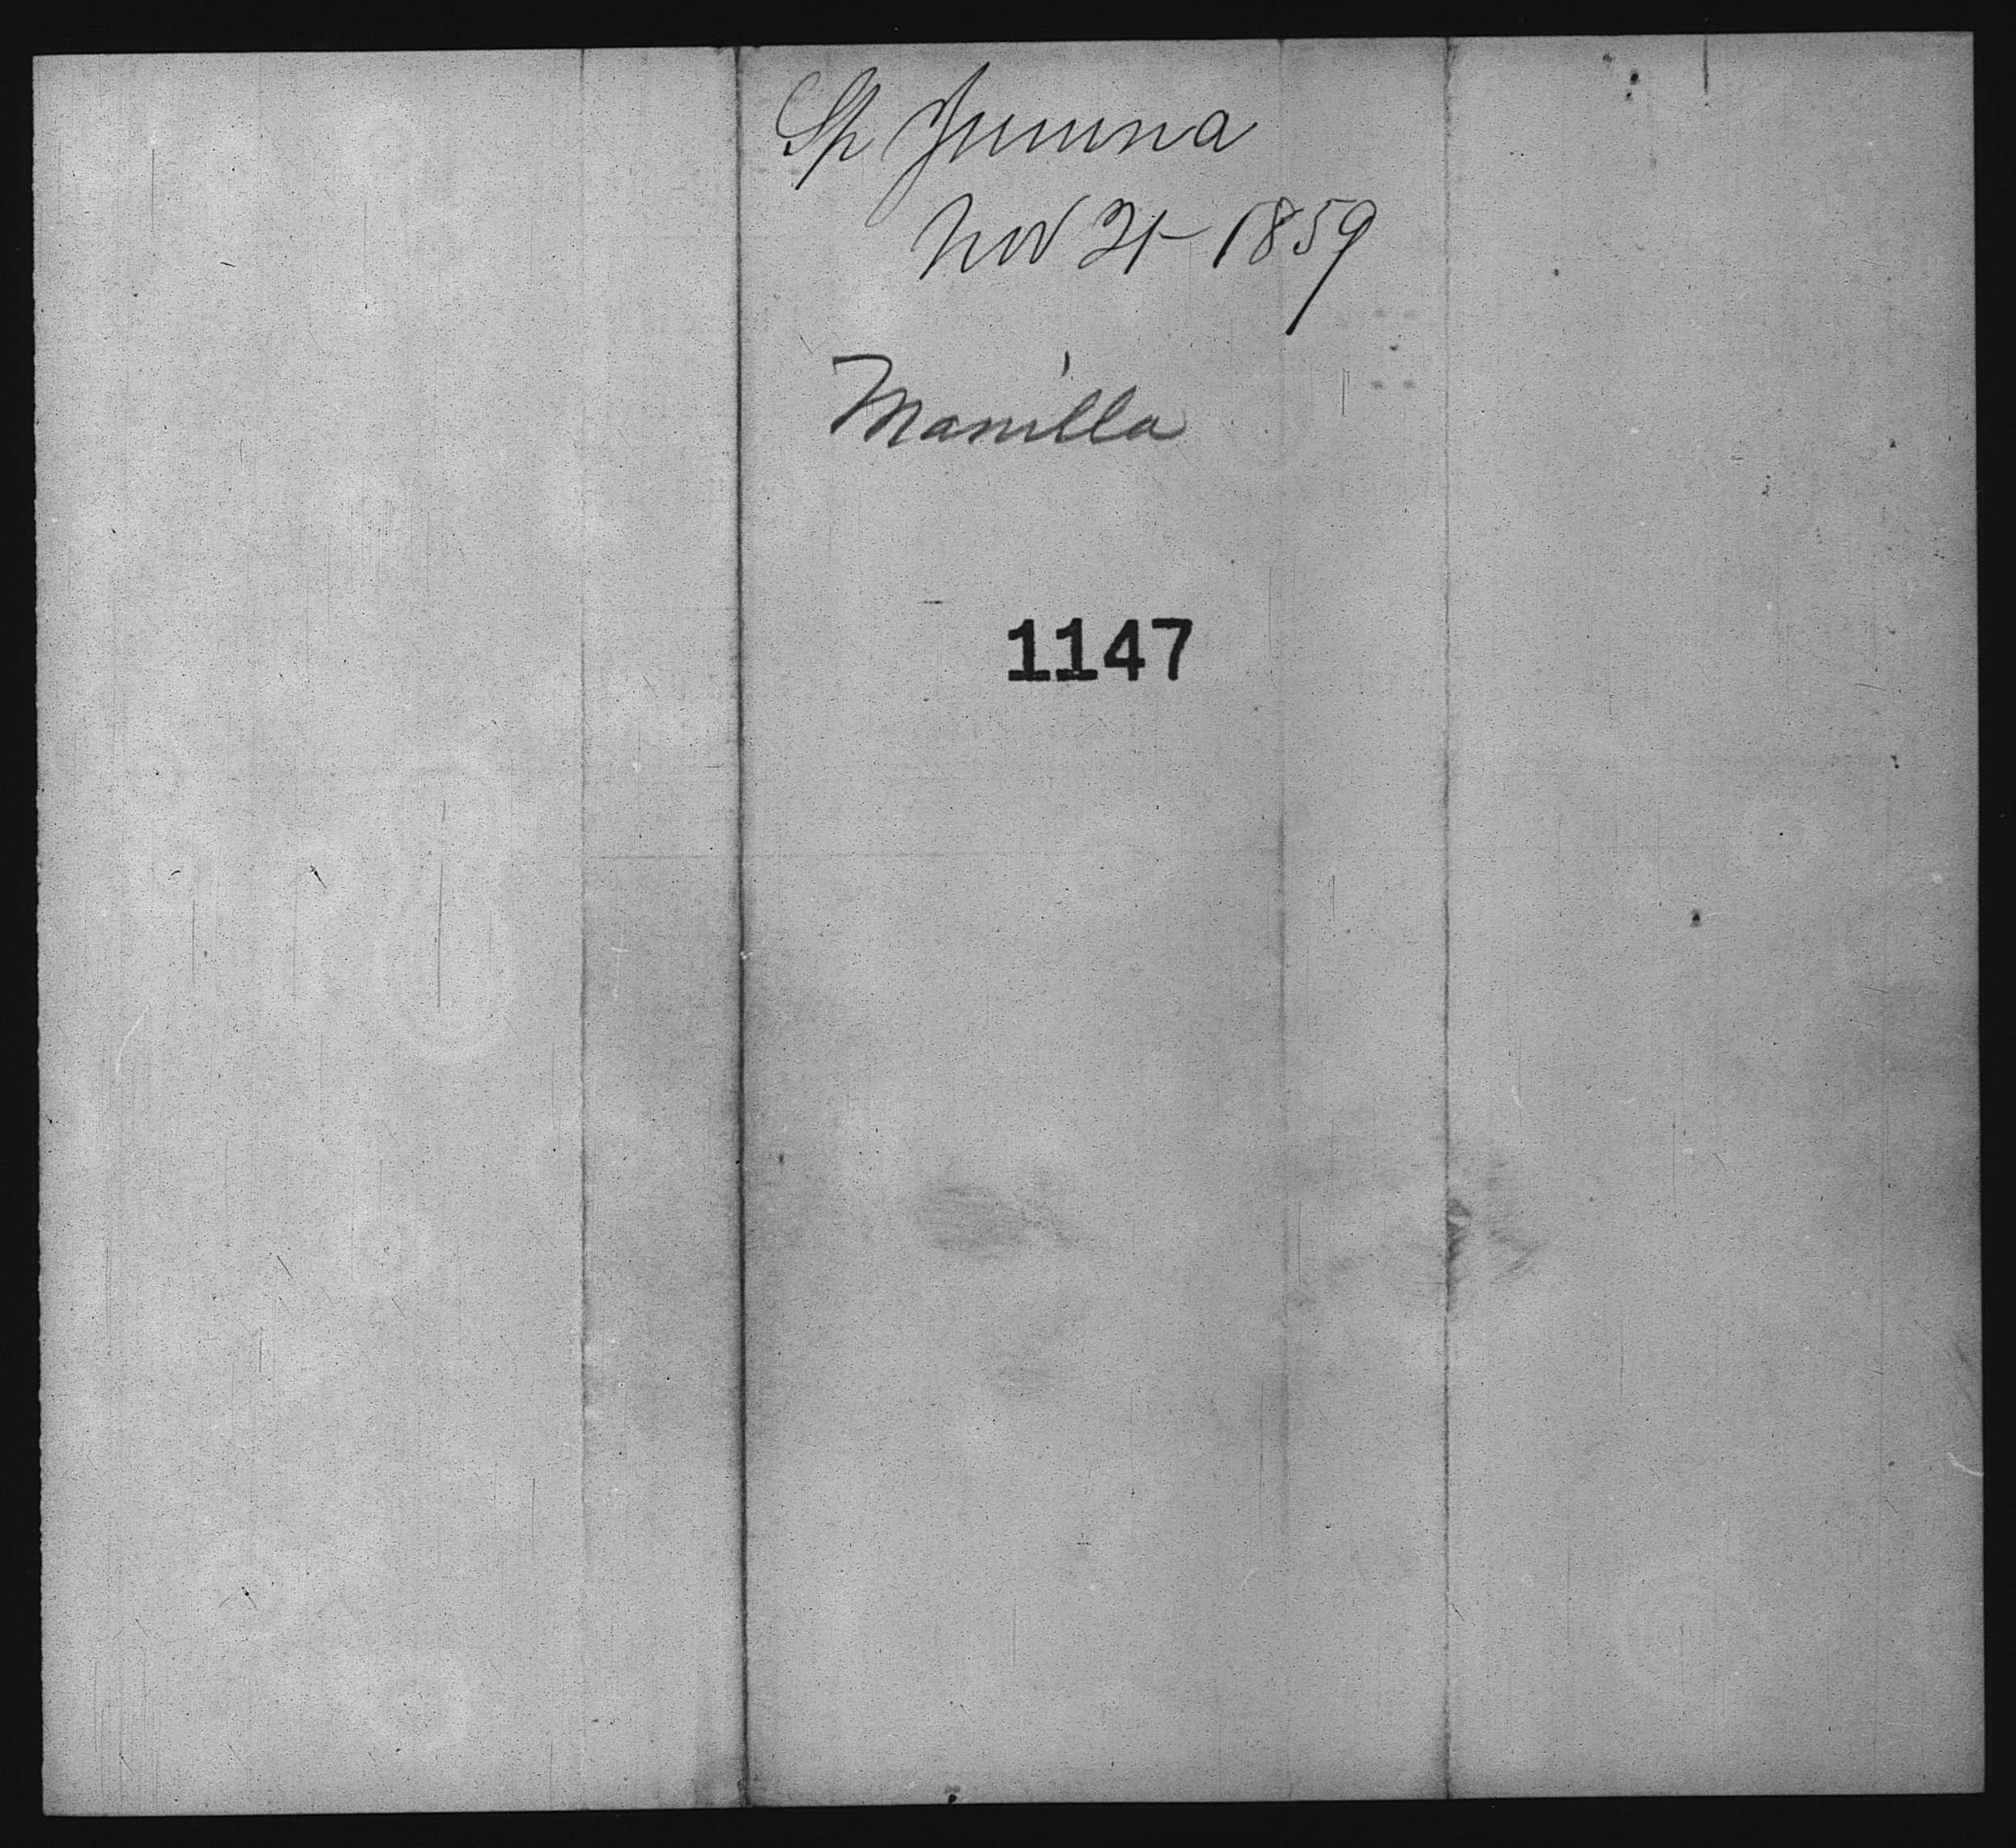 Sp Jumna
Nov 21- 1859
Manilla
1147